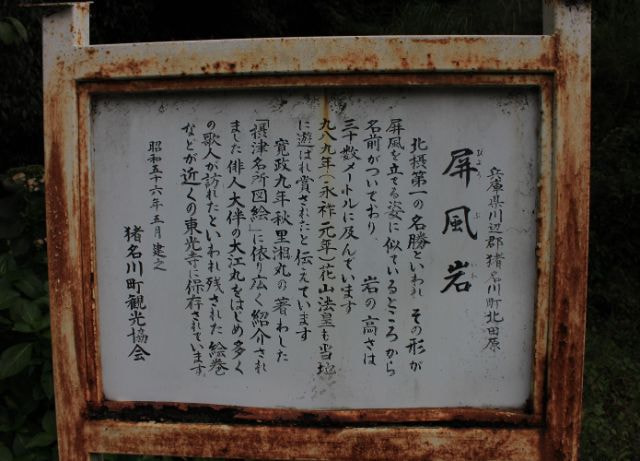 兵庫県川辺郡猪名川町北田原
屏風岩
びょう ぶ いわ
北摂第一の名勝といわれ その形が
屏風を立てる姿に似ているところから
名前がついており 岩の高さは
三十数メートルに及んでいます
九八九年(永祚元年)花山法皇も当地
に遊ばれ賞されたと伝えています
寛政九年秋里湘丸の著わした
「摂津名所図絵」に依り広く紹介され
ました俳人大伴の大江丸をはじめ多く
の歌人が訪れたといわれ残された絵巻
などが近くの東光寺に保存されています
昭和五十六年五月 建之
猪名川町観光協会